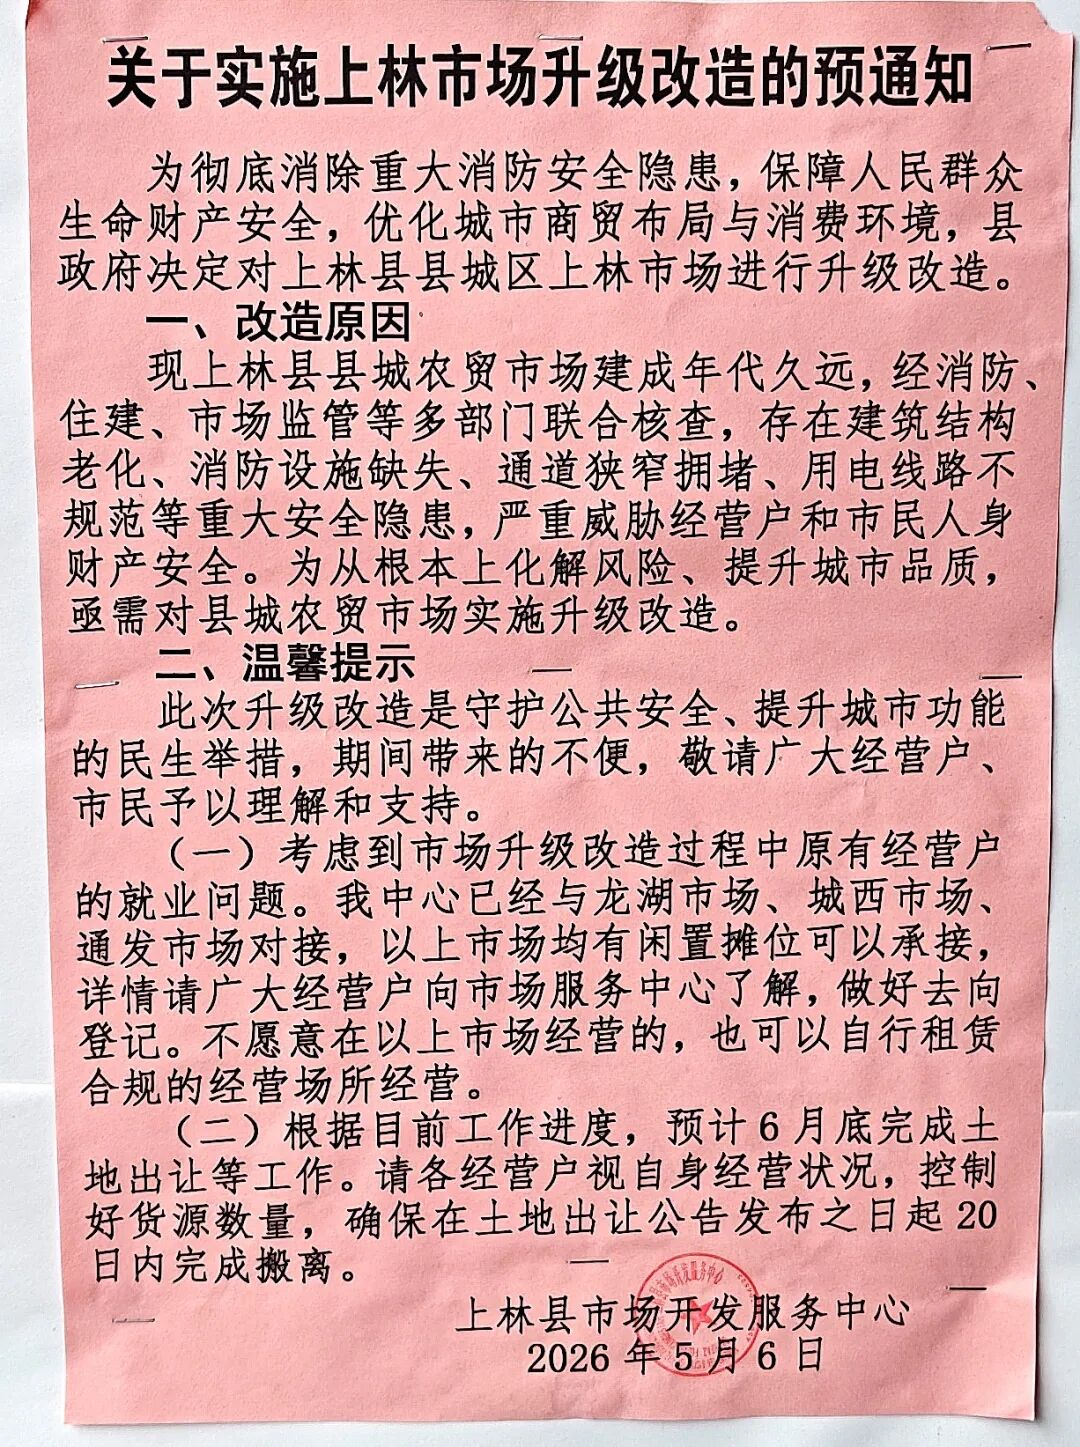 关于实施上林市场升级改造的预通知
为彻底消除重大消防安全隐患，保障人民群众
生命财产安全，优化城市商贸布局与消费环境，县
政府决定对上林县县城区上林市场进行升级改造。
一、改造原因
现上林县县城农贸市场建成年代久远，经消防、
住建、市场监管等多部门联合核查，存在建筑结构
老化、消防设施缺失、通道狭窄拥堵、用电线路不
规范等重大安全隐患，严重威胁经营户和市民人身
财产安全。为从根本上化解风险、提升城市品质，
亟需对县城农贸市场实施升级改造。
二、温馨提示
此次升级改造是守护公共安全、提升城市功能
的民生举措，期间带来的不便，敬请广大经营户、
市民予以理解和支持。
（一）考虑到市场升级改造过程中原有经营户
的就业问题。我中心已经与龙湖市场、城西市场、
通发市场对接，以上市场均有闲置摊位可以承接，
详情请广大经营户向市场服务中心了解，做好去向
登记。不愿意在以上市场经营的，也可以自行租赁
合规的经营场所经营。
（二）根据目前工作进度，预计6月底完成土
地出让等工作。请各经营户视自身经营状况，控制
好货源数量，确保在土地出让公告发布之日起20
日内完成搬离。
上林县市场开发服务中心
2026年5月6日